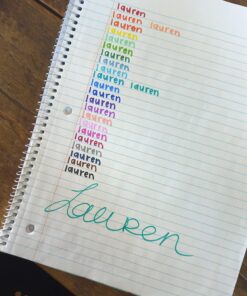 lauren
lauren lauren
lauren
lauren
lauren
lauren
lauren
lauren
lauren lauren
lauren
lauren
lauren
lauren
lauren
lauren
lauren
lauren
lauren
lauren
Lauren